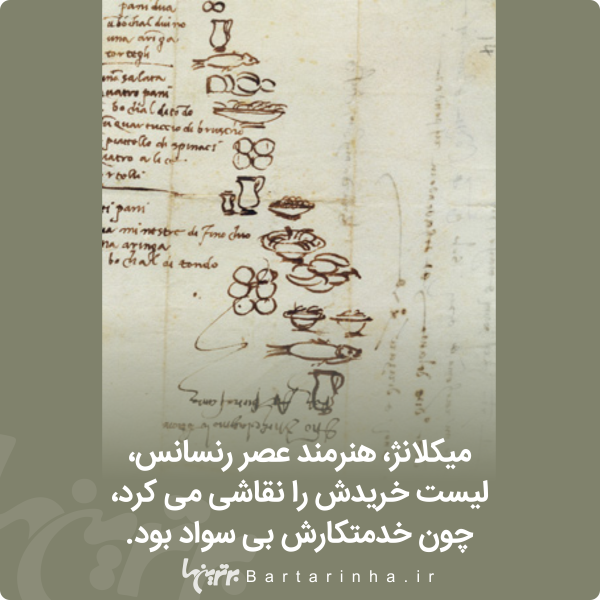 pani dua
a bochal di vino
una aringa
tortegli
una salata
quatro pani
bochal di tondo
un quartuccio di bruscho
piattello di spinaci
quatro alice
tortelli
sei pani
dua minestre di finochio
una aringa
bochal di tondo
میکلانژ، هنرمند عصر رنسانس،
لیست خریدش را نقاشی می کرد،
چون خدمتکارش بی سواد بود.
برترینها Bartarinha.ir